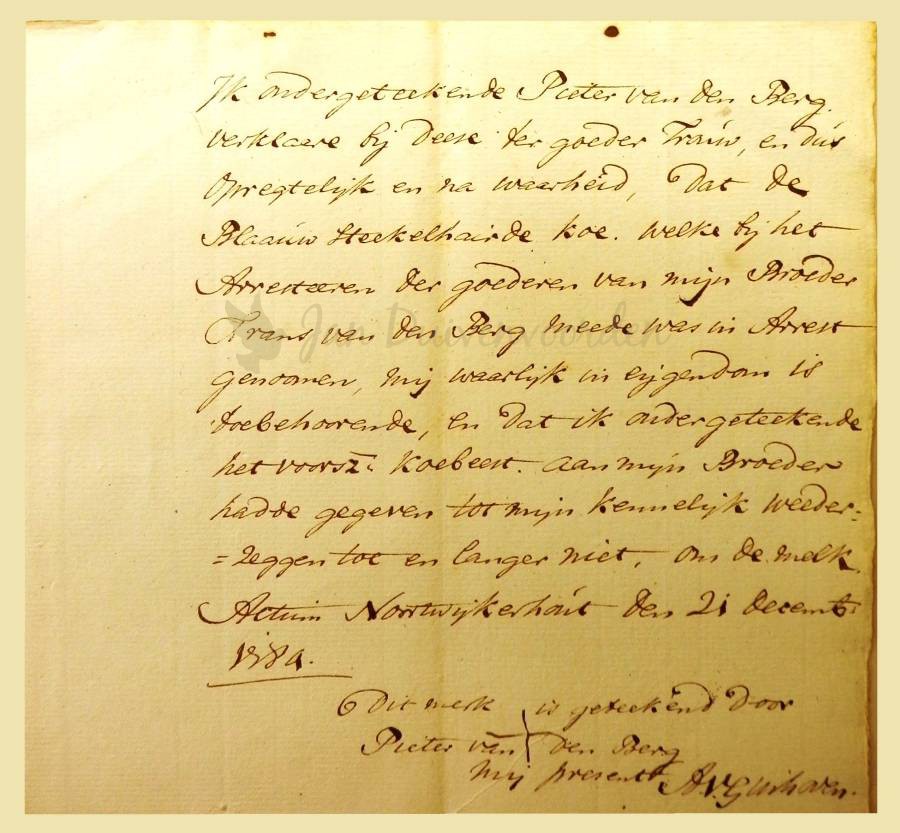 Ik ondergeteekende Pieter van den Berg.
verklaare bij deese ter goeder Trauw, en dus
opregtelijk en na waarheid, Dat de
Blaauw steekelhairde koe. welke bij het
Arresteeren der goederen van mijn Broeder
Frans van den Berg meede was in Arrest
genoomen, mij waarlijk in eijgendom is
toebehoorende, en dat ik ondergeteekende
het voorsz: koebeest. aan mijn Broeder
hadde gegeven tot mijn kennelijk weeder=
=zeggen toe en langer niet, om de melk.
Actum Noortwijkerhout den 21 decemb:
Dit merk is geteekend door
Pieter van den Berg
mij present
Jan Duivenvoorden